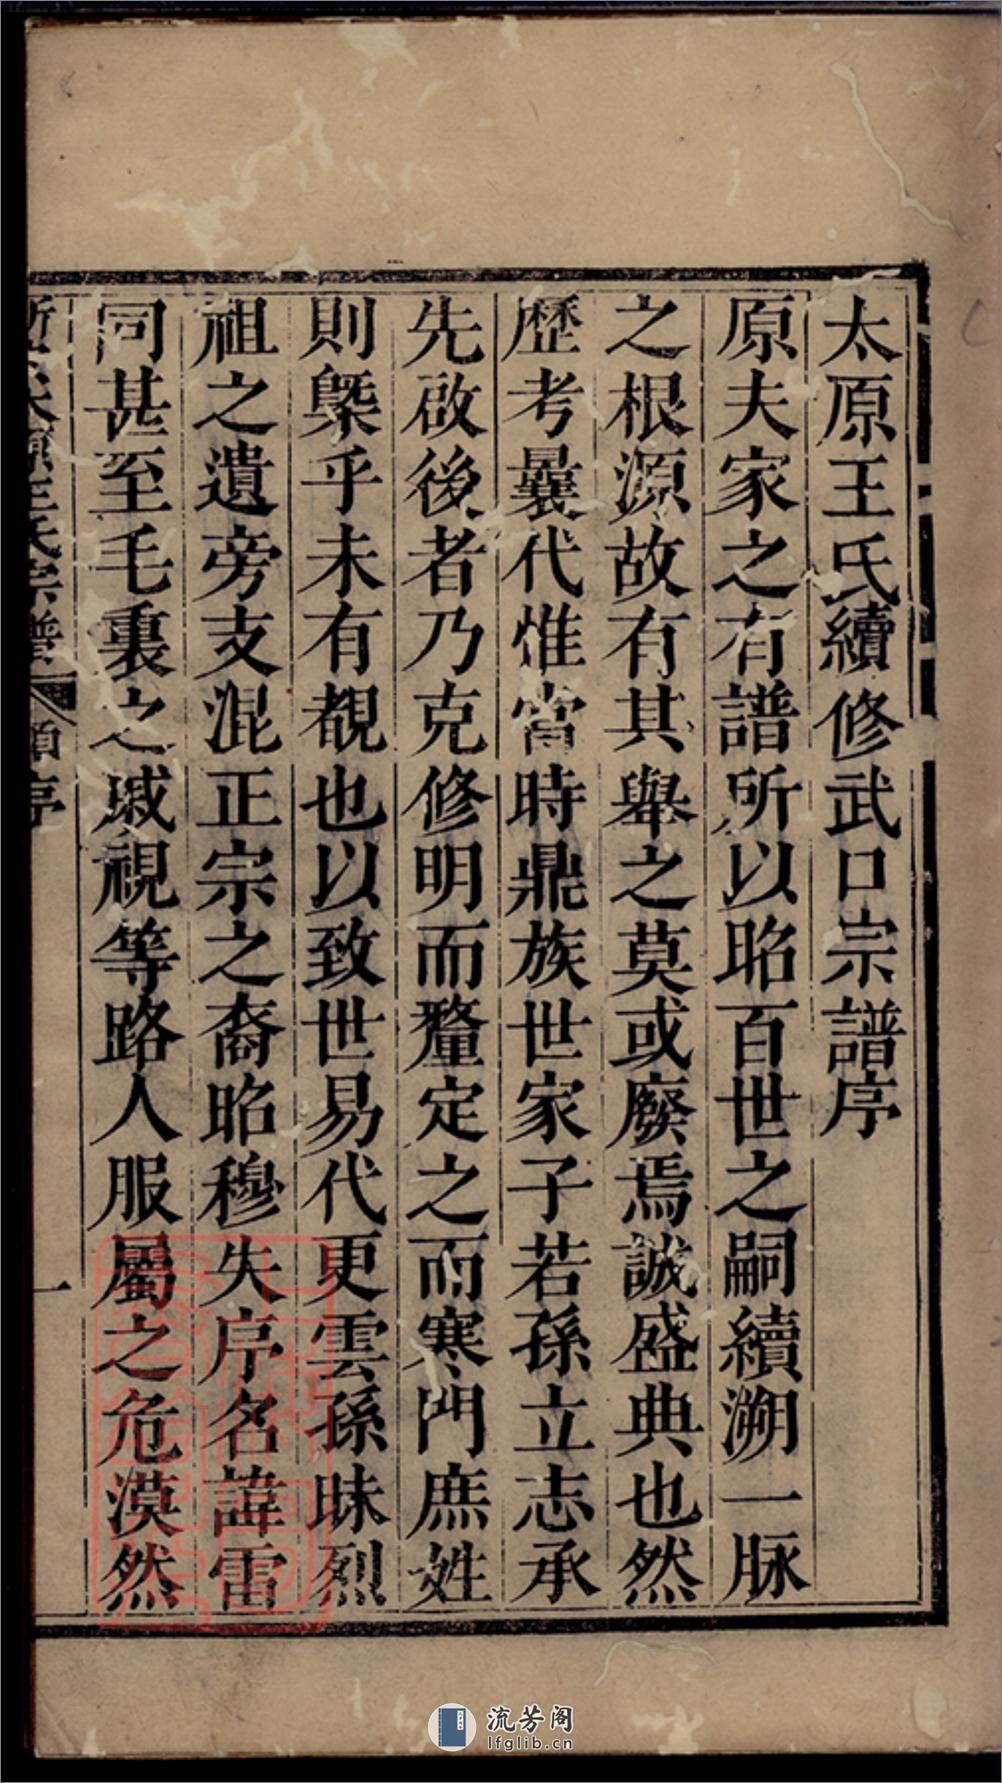 太原王氏續修武口宗譜序
原夫家之有譜所以昭百世之嗣續溯一脉
之根源故有其舉之莫或廢焉誠盛典也然
歷考曩代惟當時鼎族世家子若孫立志承
先啟後者乃克修明而釐定之而寒門庶姓
則槩乎未有覩也以致世易代更雲孫昧烈
祖之遺旁支混正宗之裔昭穆失序名諱雷
同甚至毛裏之戚視等路人服屬之危漠然
王氏宗譜
序
一
流芳阁
lfglib.cn